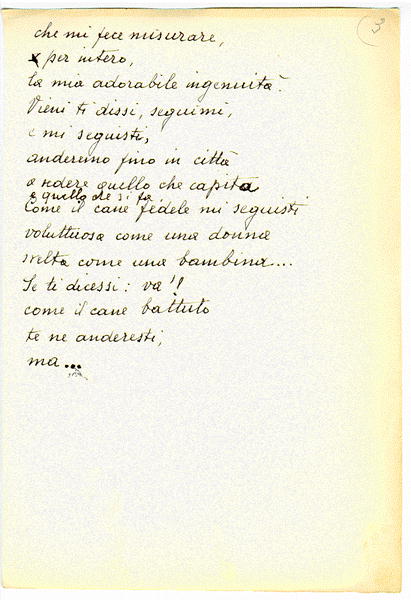 3
che mi fece misurare,
per intero,
la mia adorabile ingenuità.
Vieni ti dissi, seguimi,
e mi seguisti,
anderemo fino in città
a vedere quello che capita
e quello che si fa.
Come il cane fedele mi seguisti
voluttuosa come una donna
svelta come una bambina....
Se ti dicessi: va'!
come il cane battuto
te ne anderesti,
ma...